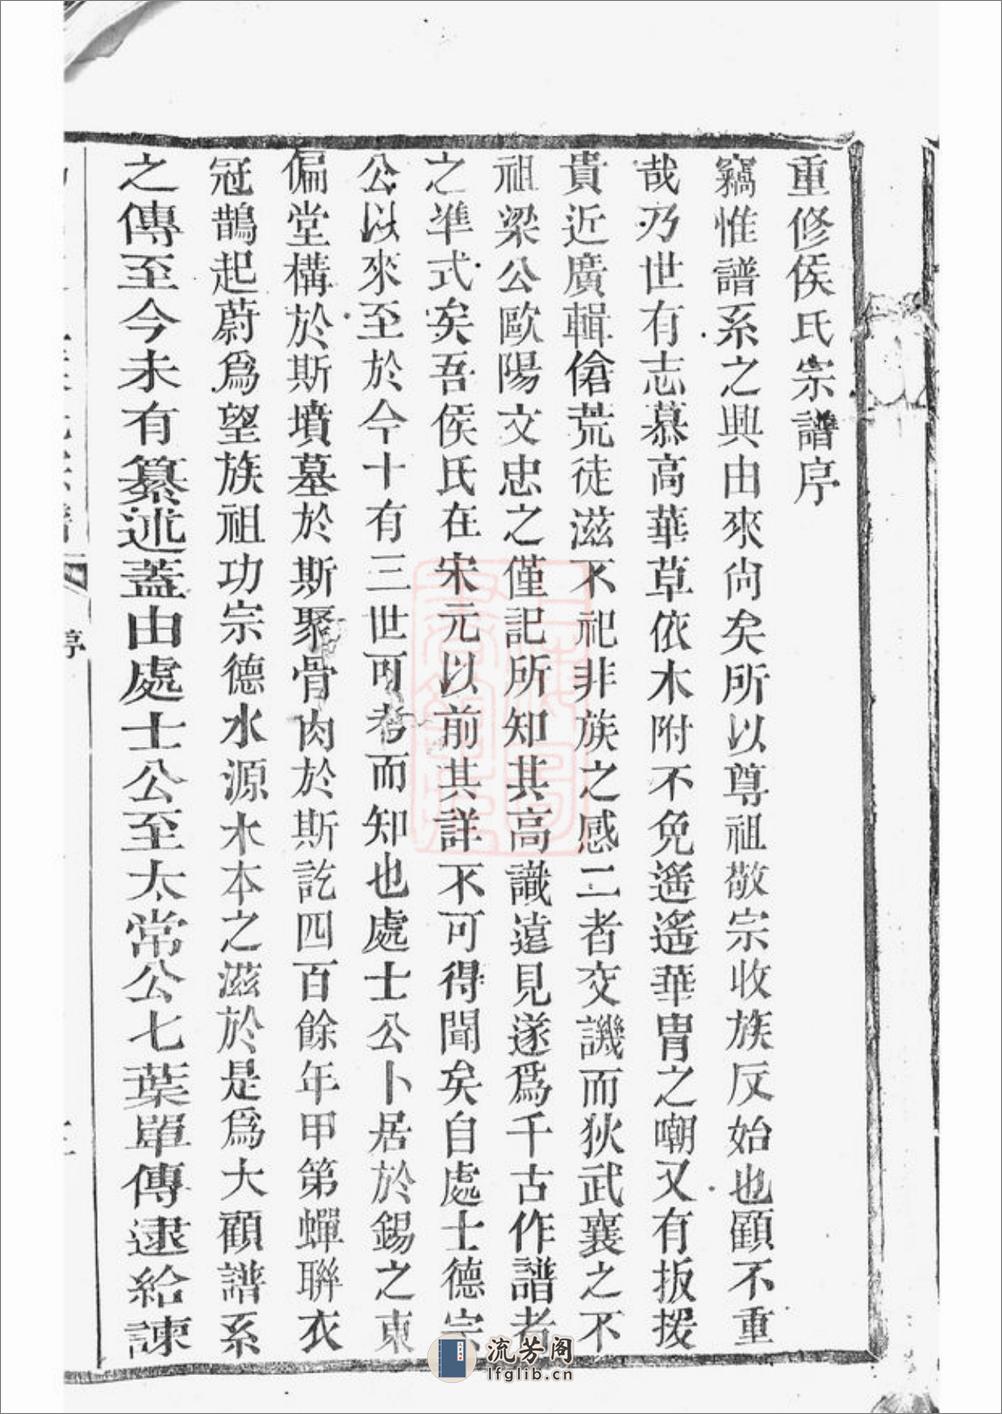 重修侯氏宗譜序
竊惟譜系之興由來尙矣所以尊祖敬宗收族反始也顧不重
哉乃世有志慕高華草依木附不免遙遙華胄之嘲又有扳援
貴近廣輯傖荒徒滋不祀非族之感二者交譏而狄武襄之不
祖梁公歐陽文忠之僅記所知其高識遠見遂爲千古作譜者
之準式矣吾侯氏在宋元以前其詳不可得聞矣自處士德宗
公以來至於今十有三世可考而知也處士公卜居於錫之東
偏堂構於斯墳墓於斯聚骨肉於斯訖四百餘年甲第蟬聯衣
冠鵲起蔚爲望族祖功宗德水源木本之滋於是爲大顧譜系
之傳至今未有纂述蓋由處士公至太常公七葉單傳逮給諫
序
流芳阁
lfglib.cn